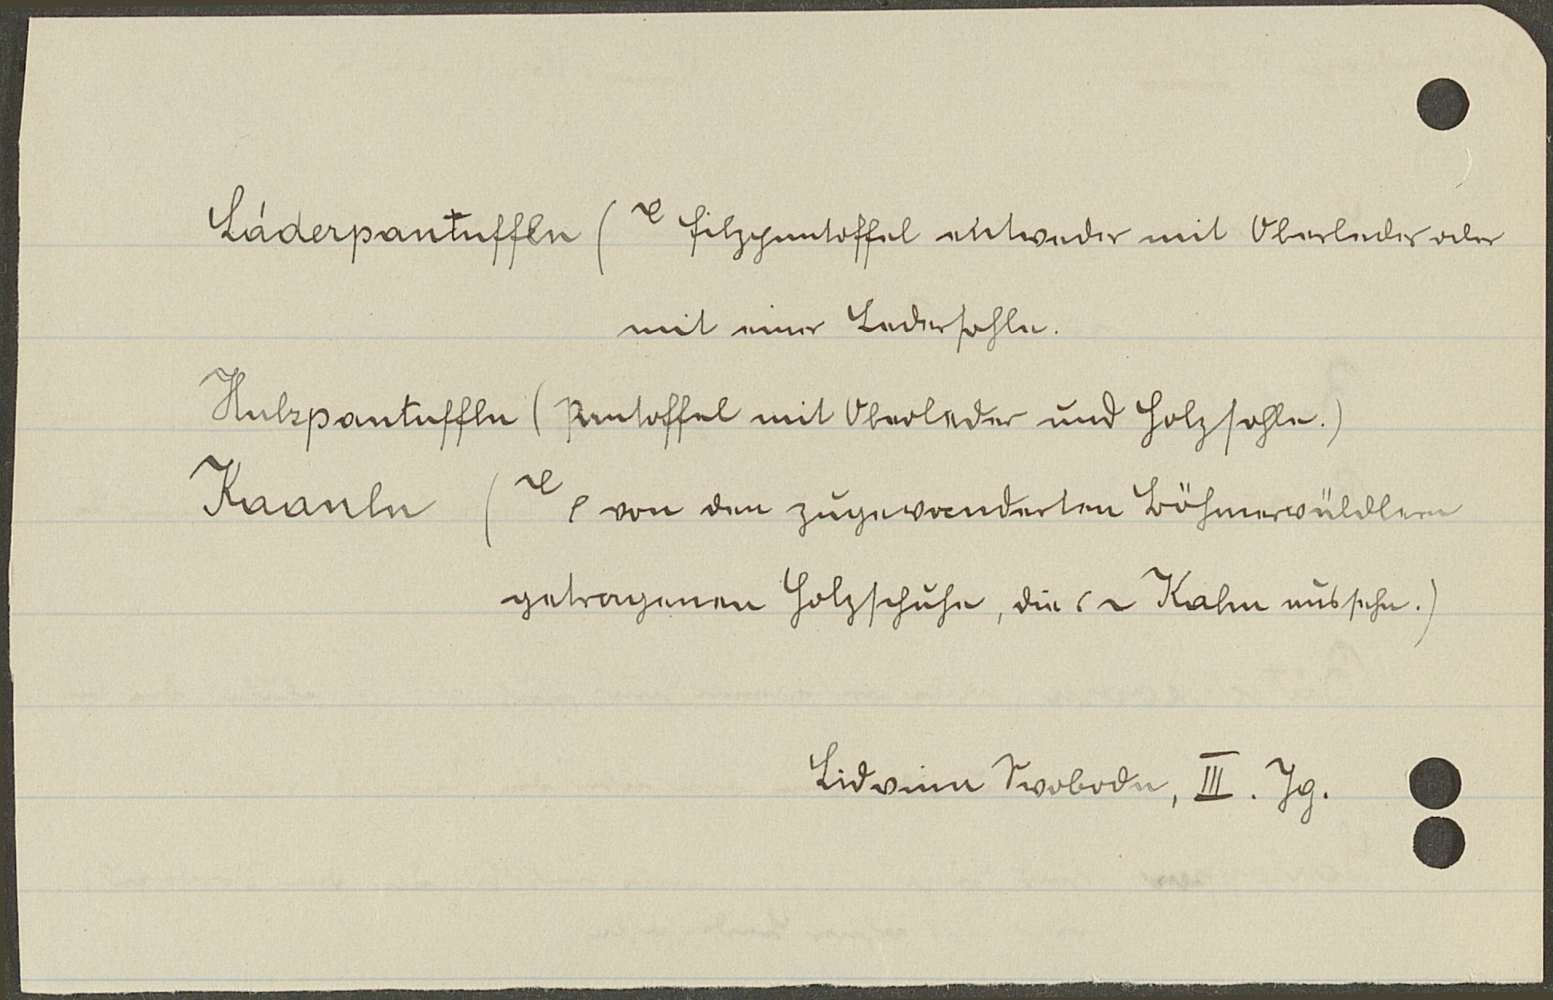 Láderpantuffln ( Filzpantoffel entweder mit Oberleder oder
mit einer Ledersohle.
Hulzpantuffln (Pantoffel mit Oberleder und Holzsohle.)
Kaanln ( von den zugewanderten Böhmerwäldlern
getragenen Holzschuhe, die Kahn aussehn.)
Lidvina Svoboda, III. Jg.